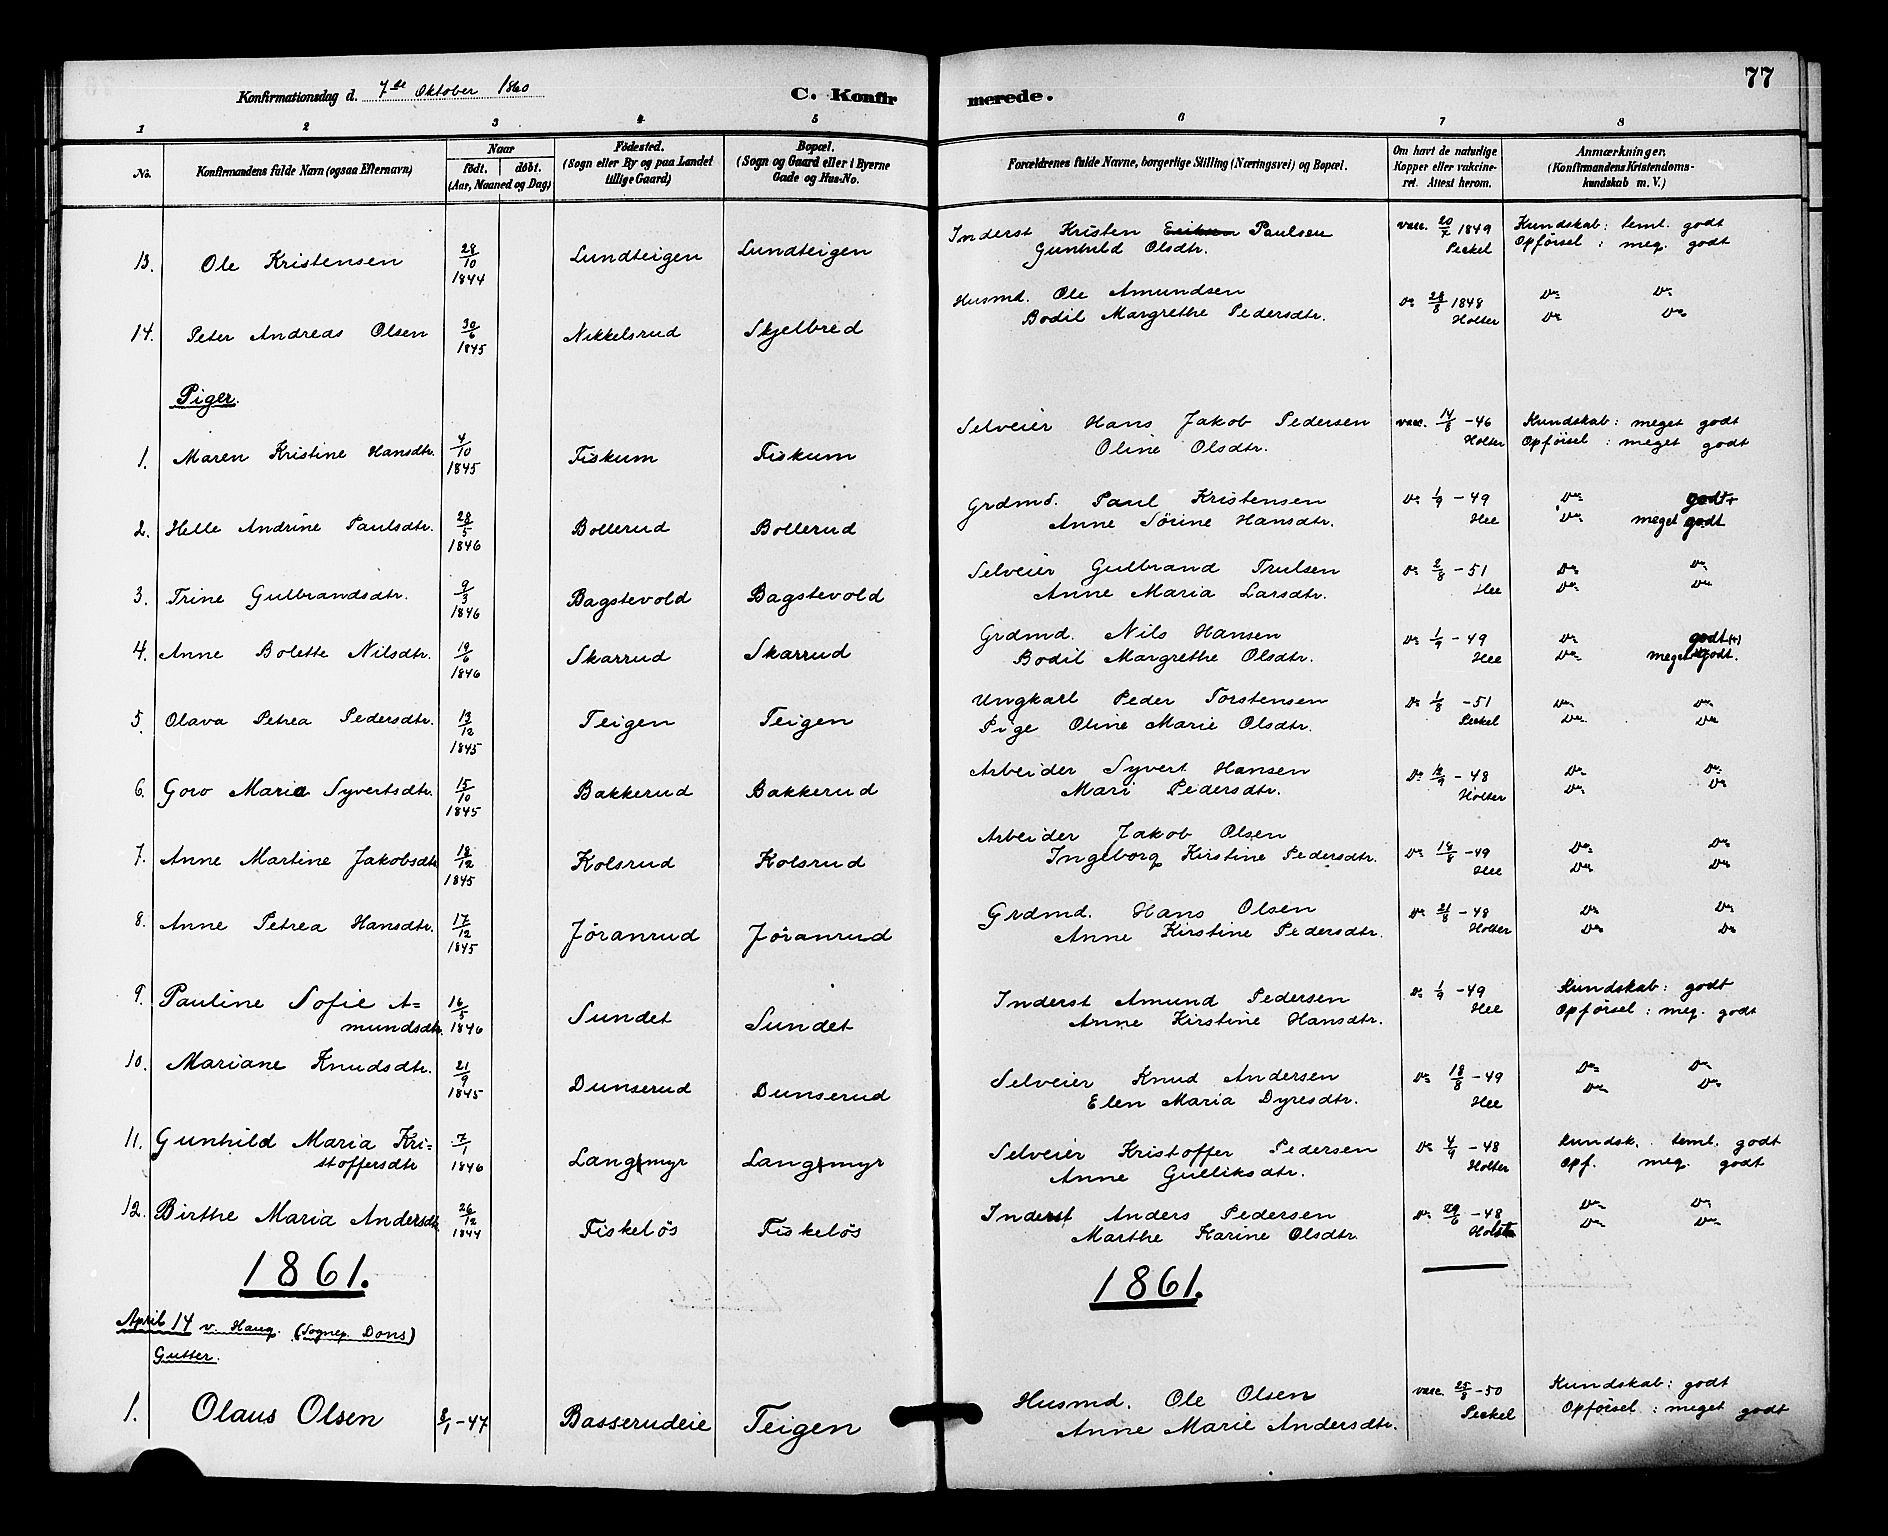 Konfirmationsdag d. 7de Oktober 1860
C. Konfirmerede.
77
1 2 3 4 5 6 7 8
No.
Konfirmandens fulde Navn (ogsaa Efternavn)
Naar
født. døbt.
(Aar, Maaned og Dag)
Fødested.
(Sogn eller By og paa Landet
tillige Gaard)
Bopæl.
(Sogn og Gaard eller i Byerne
Gade og Hus-No.
Forældrenes fulde Navne, borgerlige Stilling (Næringsvei) og Bopæl.
Om havt de naturlige
Kopper eller vakcine-
ret. Attest herom.
Anmærkninger,
(Konfirmandens Kristendoms-
kundskab m. V.)
13. Ole Kristensen 28/10 1844 Lundteigen Lundteigen Inderst Kristen Eriksen Paulsen vacc. 20/7 1849 Kundskab: teml. godt
Gunhild Olsdtr. Peckel Opførsel: meg. godt
14. Peter Andreas Olsen 30/6 1845 Nikkelsrud Skjelbred Husmd. Ole Amundsen Do 28/8 1848 Do Do
Bodil Margrethe Pedersdtr. Holter Do Do
Piger.
1. Maren Kristine Hansdtr. 4/10 1845 Fiskum Fiskum Selveier Hans Jakob Pedersen vacc. 14/8 - 46 Kundskab: meget godt
Oline Olsdtr. Holter Opførsel: meget godt
2. Helle Andrine Paulsdtr. 28/5 1846 Bollerud Bollerud Grdmd. Paul Kristensen Do 1/9 - 49 Do godt
Anne Sørine Hansdtr. Hee Do meget godt
3. Trine Gulbrandsdtr. 9/3 1846 Bagstevold Bagstevold Selveier Gulbrand Trulsen Do 2/8 - 51 Do Do
Anne Maria Larsdtr. Hee Do Do
4. Anne Bolette Nilsdtr. 19/6 1846 Skarrud Skarrud Grdmd. Nils Hansen Do 1/9 - 49 Do godt
Bodil Margrethe Olsdtr. Hee Do meget godt.
5. Olava Petrea Pedersdtr. 13/12 1845 Teigen Teigen Ungkarl Peder Torstensen Do 1/8 - 51 Do Do
Pige Oline Marie Olsdtr. Peckel Do Do
6. Goro Maria Syvertsdtr. 15/10 1845 Bakkerud Bakkerud Arbeider Syvert Hansen Do - 48 Do Do
Mari Pedersdtr. Holter Do Do
7. Anne Martine Jakobsdtr 18/12 1845 Kolsrud Kolsrud Arbeider Jakob Olsen
Ingeborg Kirstine Pedersdtr. Do 18/8 - 49 Do Do
Hee Do Do
8. Anne Petrea Hansdtr. 17/12 1845 Jøranrud Jøranrud Grdmd. Hans Olsen Do 21/8 - 48 Do Do
Anne Kirstine Pedersdtr. Holter Do Do
9. Pauline Sofie A= 16/5 1846 Sundet Sundet Inderst Amund Pedersen Do 1/9 - 49 Kundskab: godt
mundsdtr. Anne Kirstine Hansdtr. Hee Opførsel: meg. godt
10. Mariane Knudsdtr. 21/9 1845 Dunserud Dunserud Selveier Knud Andersen Do 18/8 - 49 Do Do
Elen Maria Dyresdtr. Hee Do Do
11. Gunhild Maria Kri= 7/1 1846 Langmyr Langmyr Selveier Kristoffer Pedersen Do 4/9 - 48 Kundsk. teml. godt
stoffersdtr Anne Gulliksdtr. Holter Opf. meg. godt
12. Birthe Maria Andersdtr 26/12 1844 Fiskeløs Fiskeløs Inderst Anders Pedersen Do 29/6 - 48 Do Do
Marthe Karine Olsdtr. Do Do
1861. 1861.
April 14 v. Haug. (Sognep. Dons)
Gutter.
1. Olaus Olsen - 47 Basserudeie Teigen Husmd. Ole Olsen vacc. 25/8 - 50 Kundskab: godt
Anne Marie Andersdtr. Peckel Opførsel: meget godt